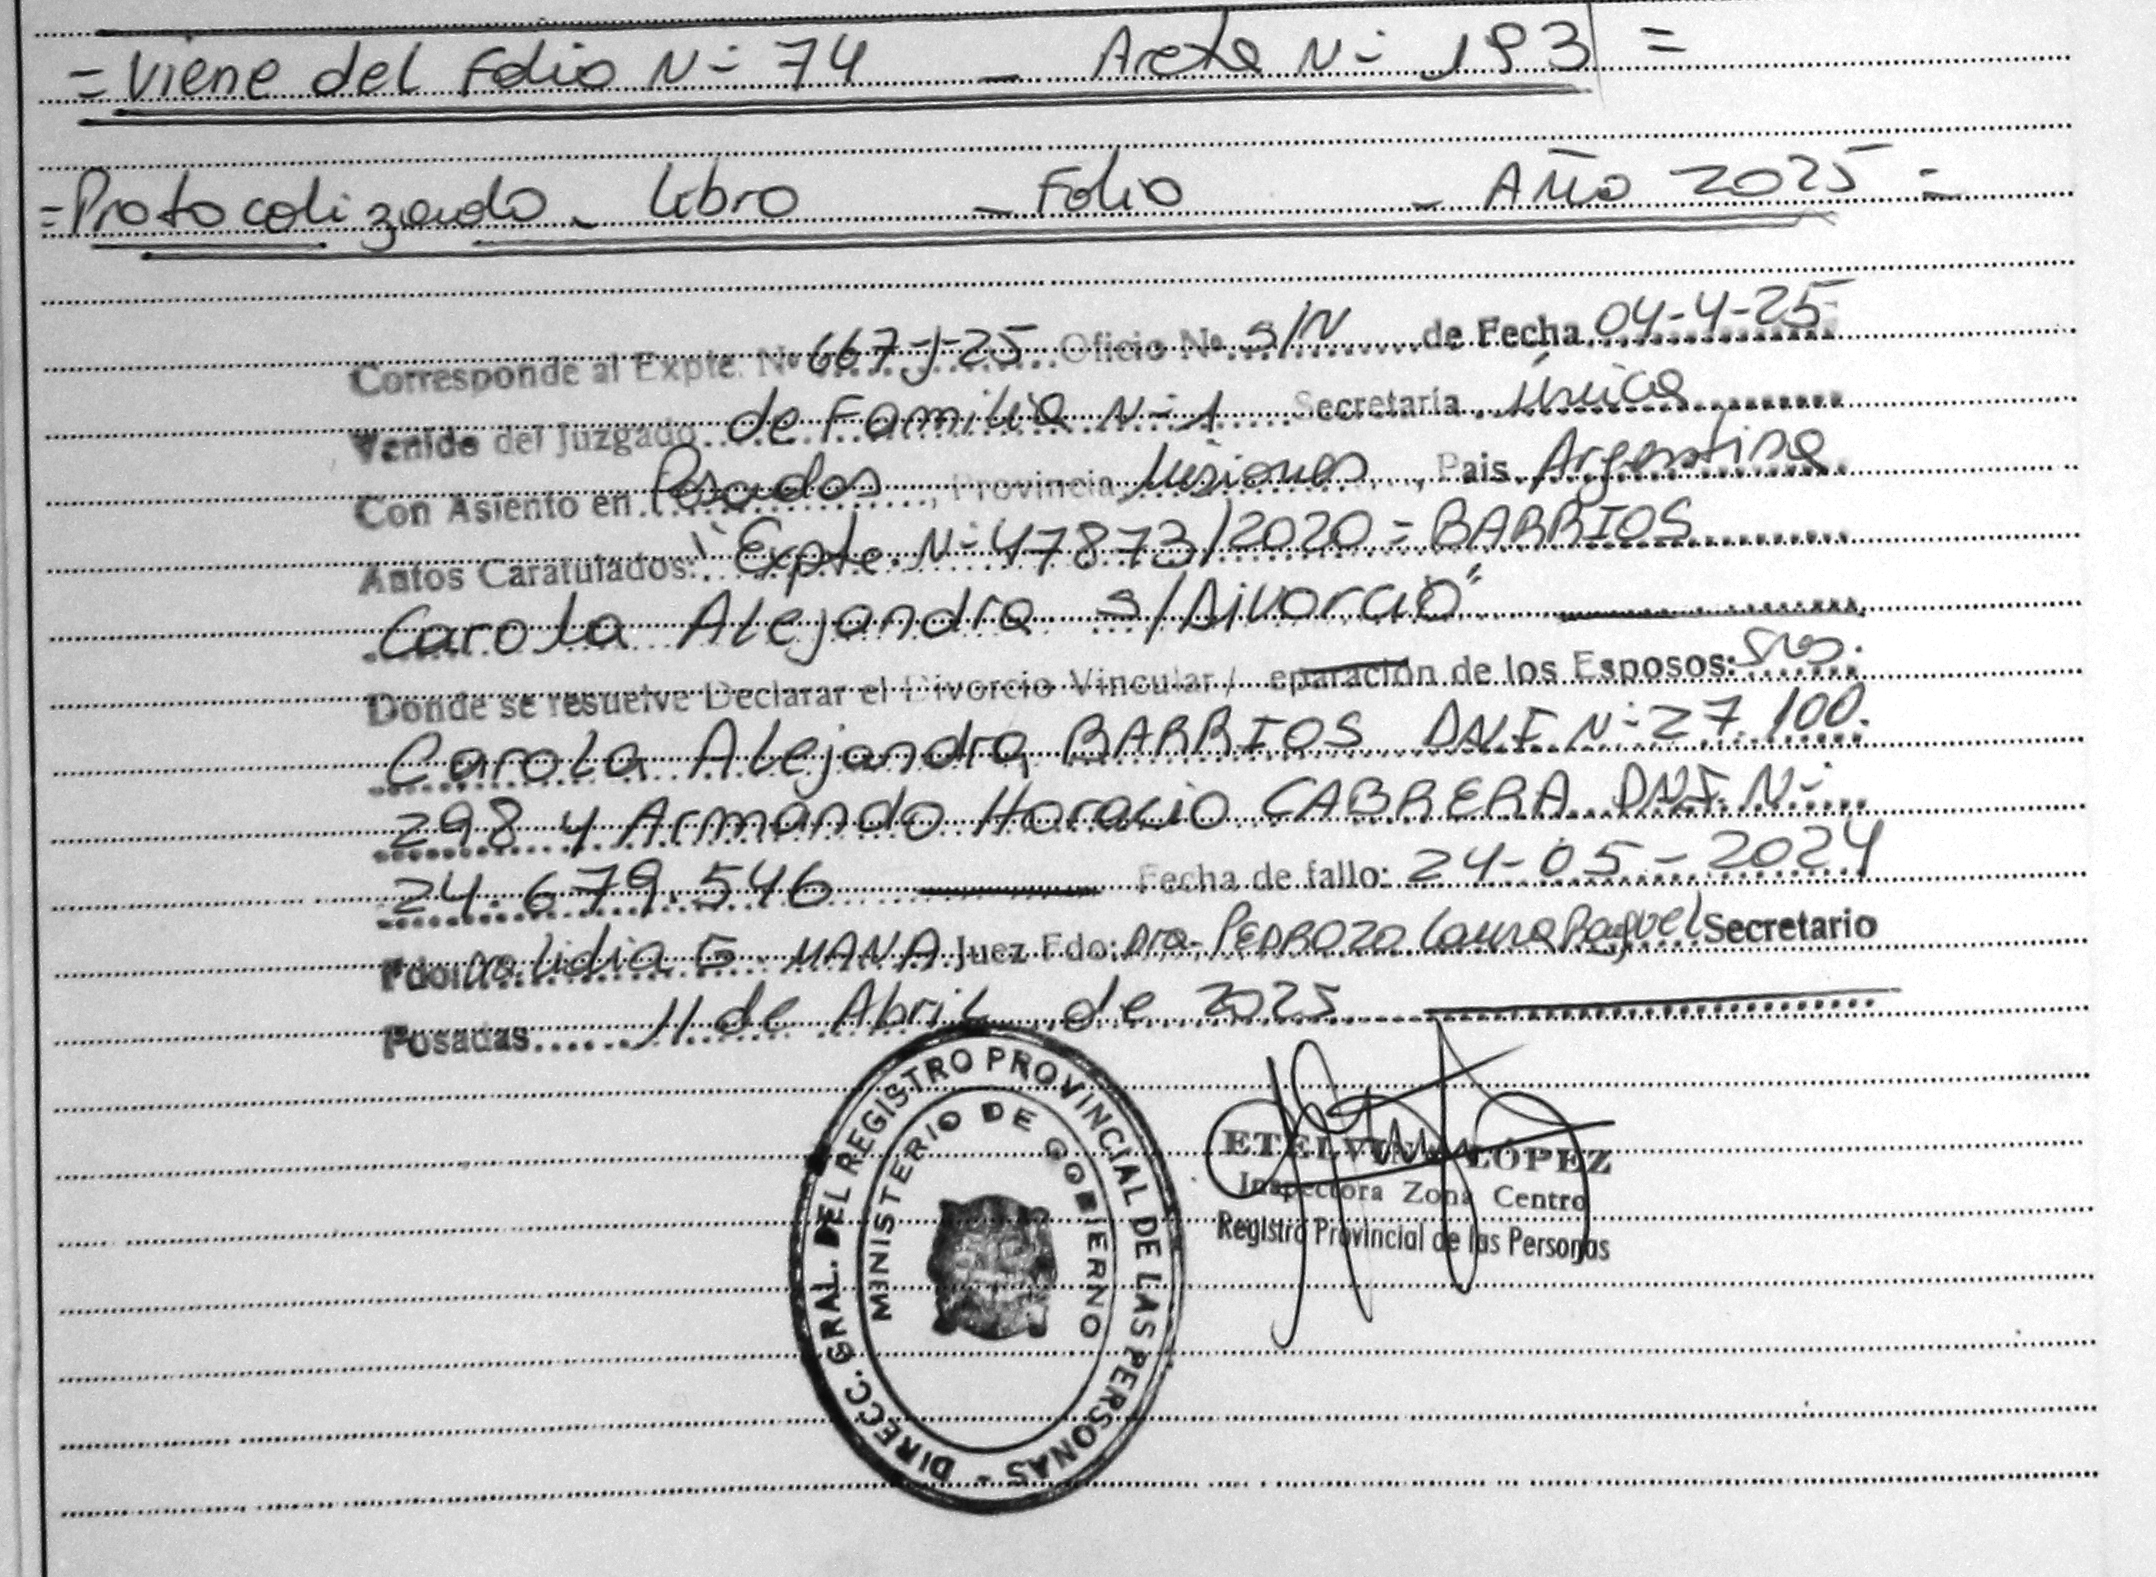 = Viene del Folio N- 74 _ Acta N- 193 =
= Protocolizado _ Libro _ Folio _ Año 2025 =
Corresponde al Expte. Nº 667-J-25 Oficio Nº S/N de Fecha 04-4-25
Venido del Juzgado de Familia N- 1 Secretaria Única
Con Asiento en Posadas, Provincia Misiones, Pais Argentina
Autos Caratulados: "Expte. N- 47873/2020 = BARRIOS
Carola Alejandra S/Divorcio"
Donde se resuelve Declarar el Divorcio Vincular / eparación de los Esposos: Sres.
Carola Alejandra BARRIOS DNI N- 27.100.
298 y Armando Horacio CABRERA DNI N-
24.679.546 Fecha de fallo: 24-05-2024
Fdo: Dra Lidia G. MANA Juez Fdo: Dra. PEDROZO Laura Raquel Secretario
Posadas 11 de Abril de 2025
DIRECC. GRAL. DEL REGISTRO PROVINCIAL DE LAS PERSONAS -
MINISTERIO DE GOBIERNO
ETELVINA LÓPEZ
Inspectora Zona Centro
Registro Provincial de las Personas